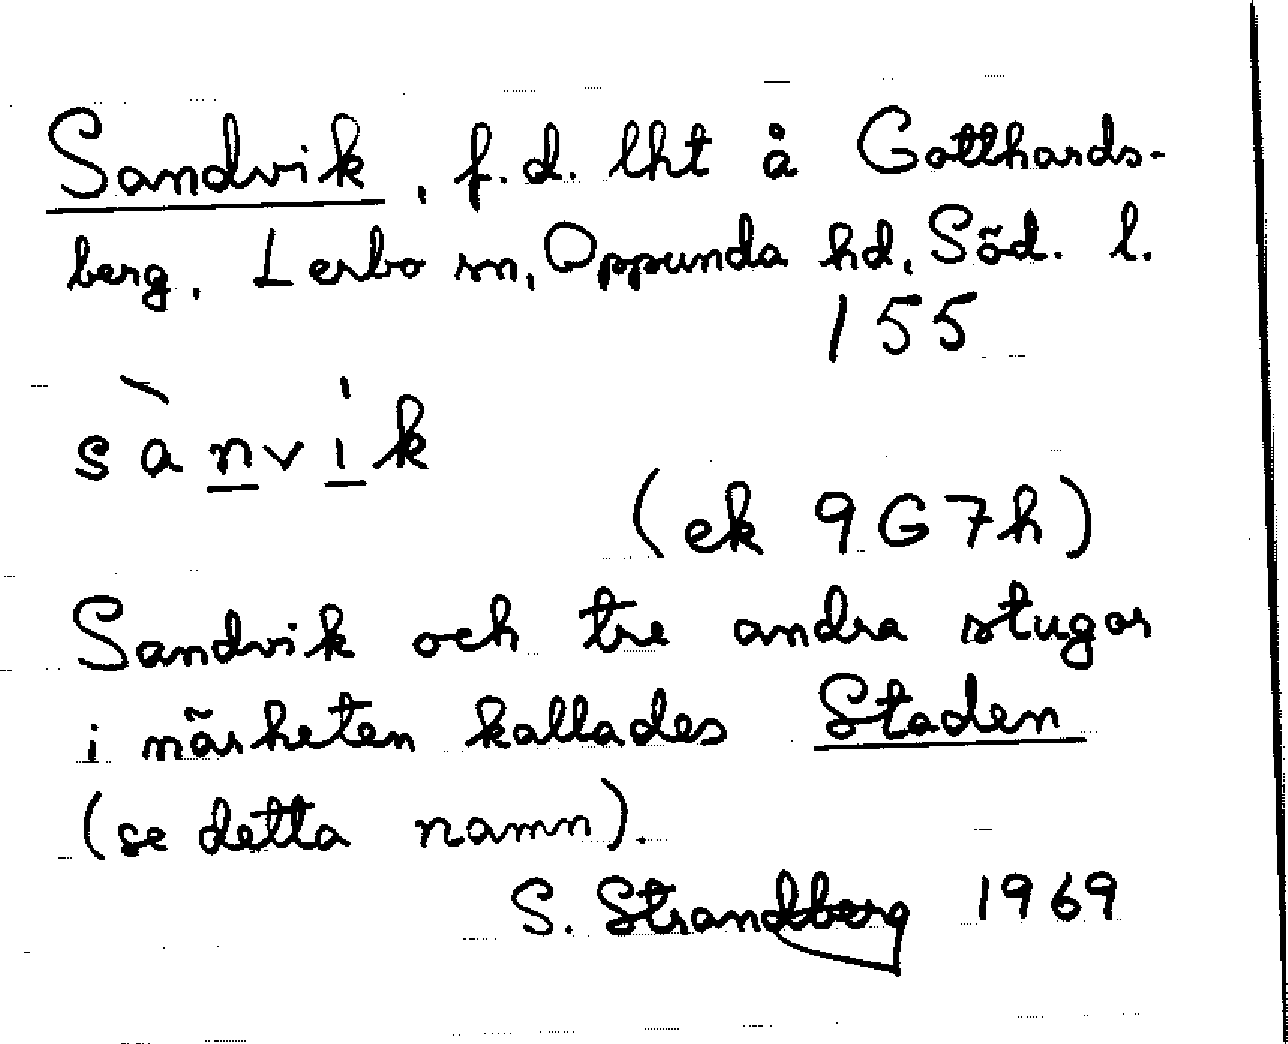 Sandvik, f.d. lht å Gotthards-
berg, Lerbo sn, Oppunda hd, Söd. l.
155
sànvi̍k
(ek 9G7h)
Sandvik och tre andra stugor
i närheten kallades Staden
(se detta namn).
S. Strandberg 1969